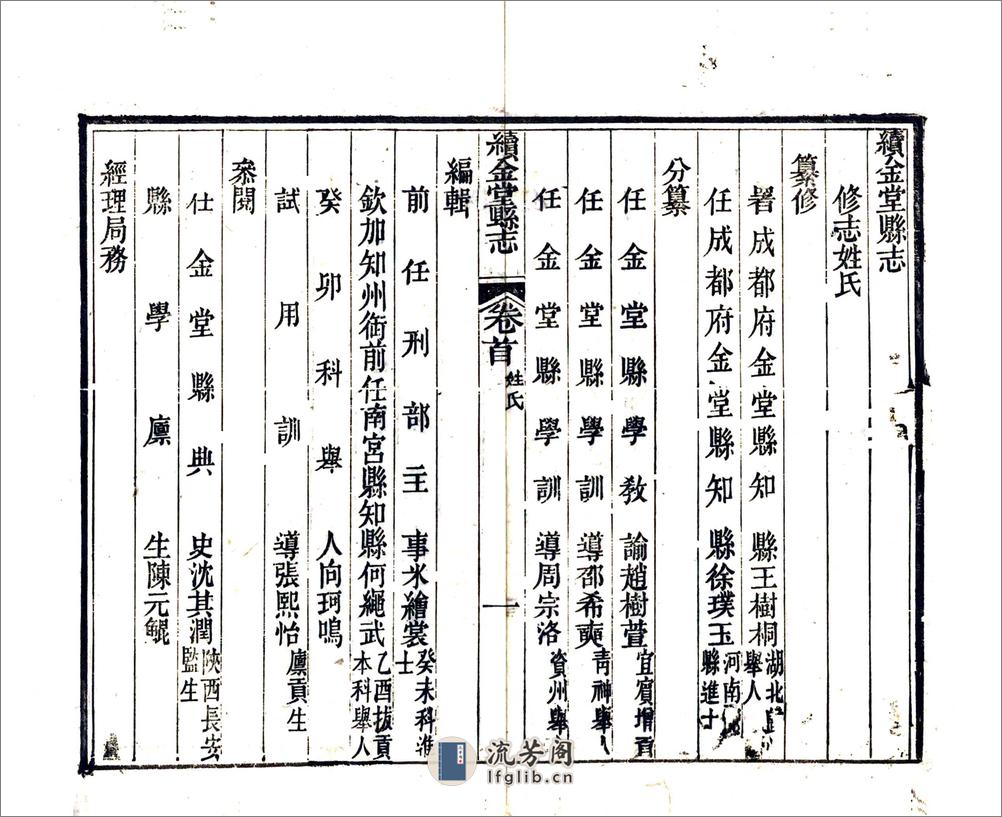 續金堂縣志
修志姓氏
纂修
署成都府金堂縣知縣王樹桐湖北舉人
任成都府金堂縣知縣徐璞玉河南縣進士
分纂
任金堂縣學教諭趙樹萱宜賓增貢
任金堂縣學訓導邵希奭青神舉人
任金堂縣學訓導周宗洛資州舉
續金堂縣志 卷首 姓氏 一
編輯
前任刑部主事米繪裳癸未科進士
欽加知州銜前任南宮縣知縣何繩武乙酉拔貢本科舉人
癸卯科舉人向珂鳴
試用訓導張熙怡廩貢生
叅閱
仕金堂縣典史沈其潤陝西長安監生
縣學廩生陳元鯤
經理局務
流芳阁
lfglib.cn